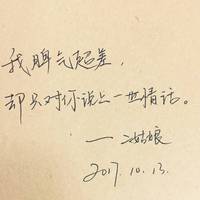 我脾气超差，
却只对你说上一世情话。
——二姑娘
2017.10.13.